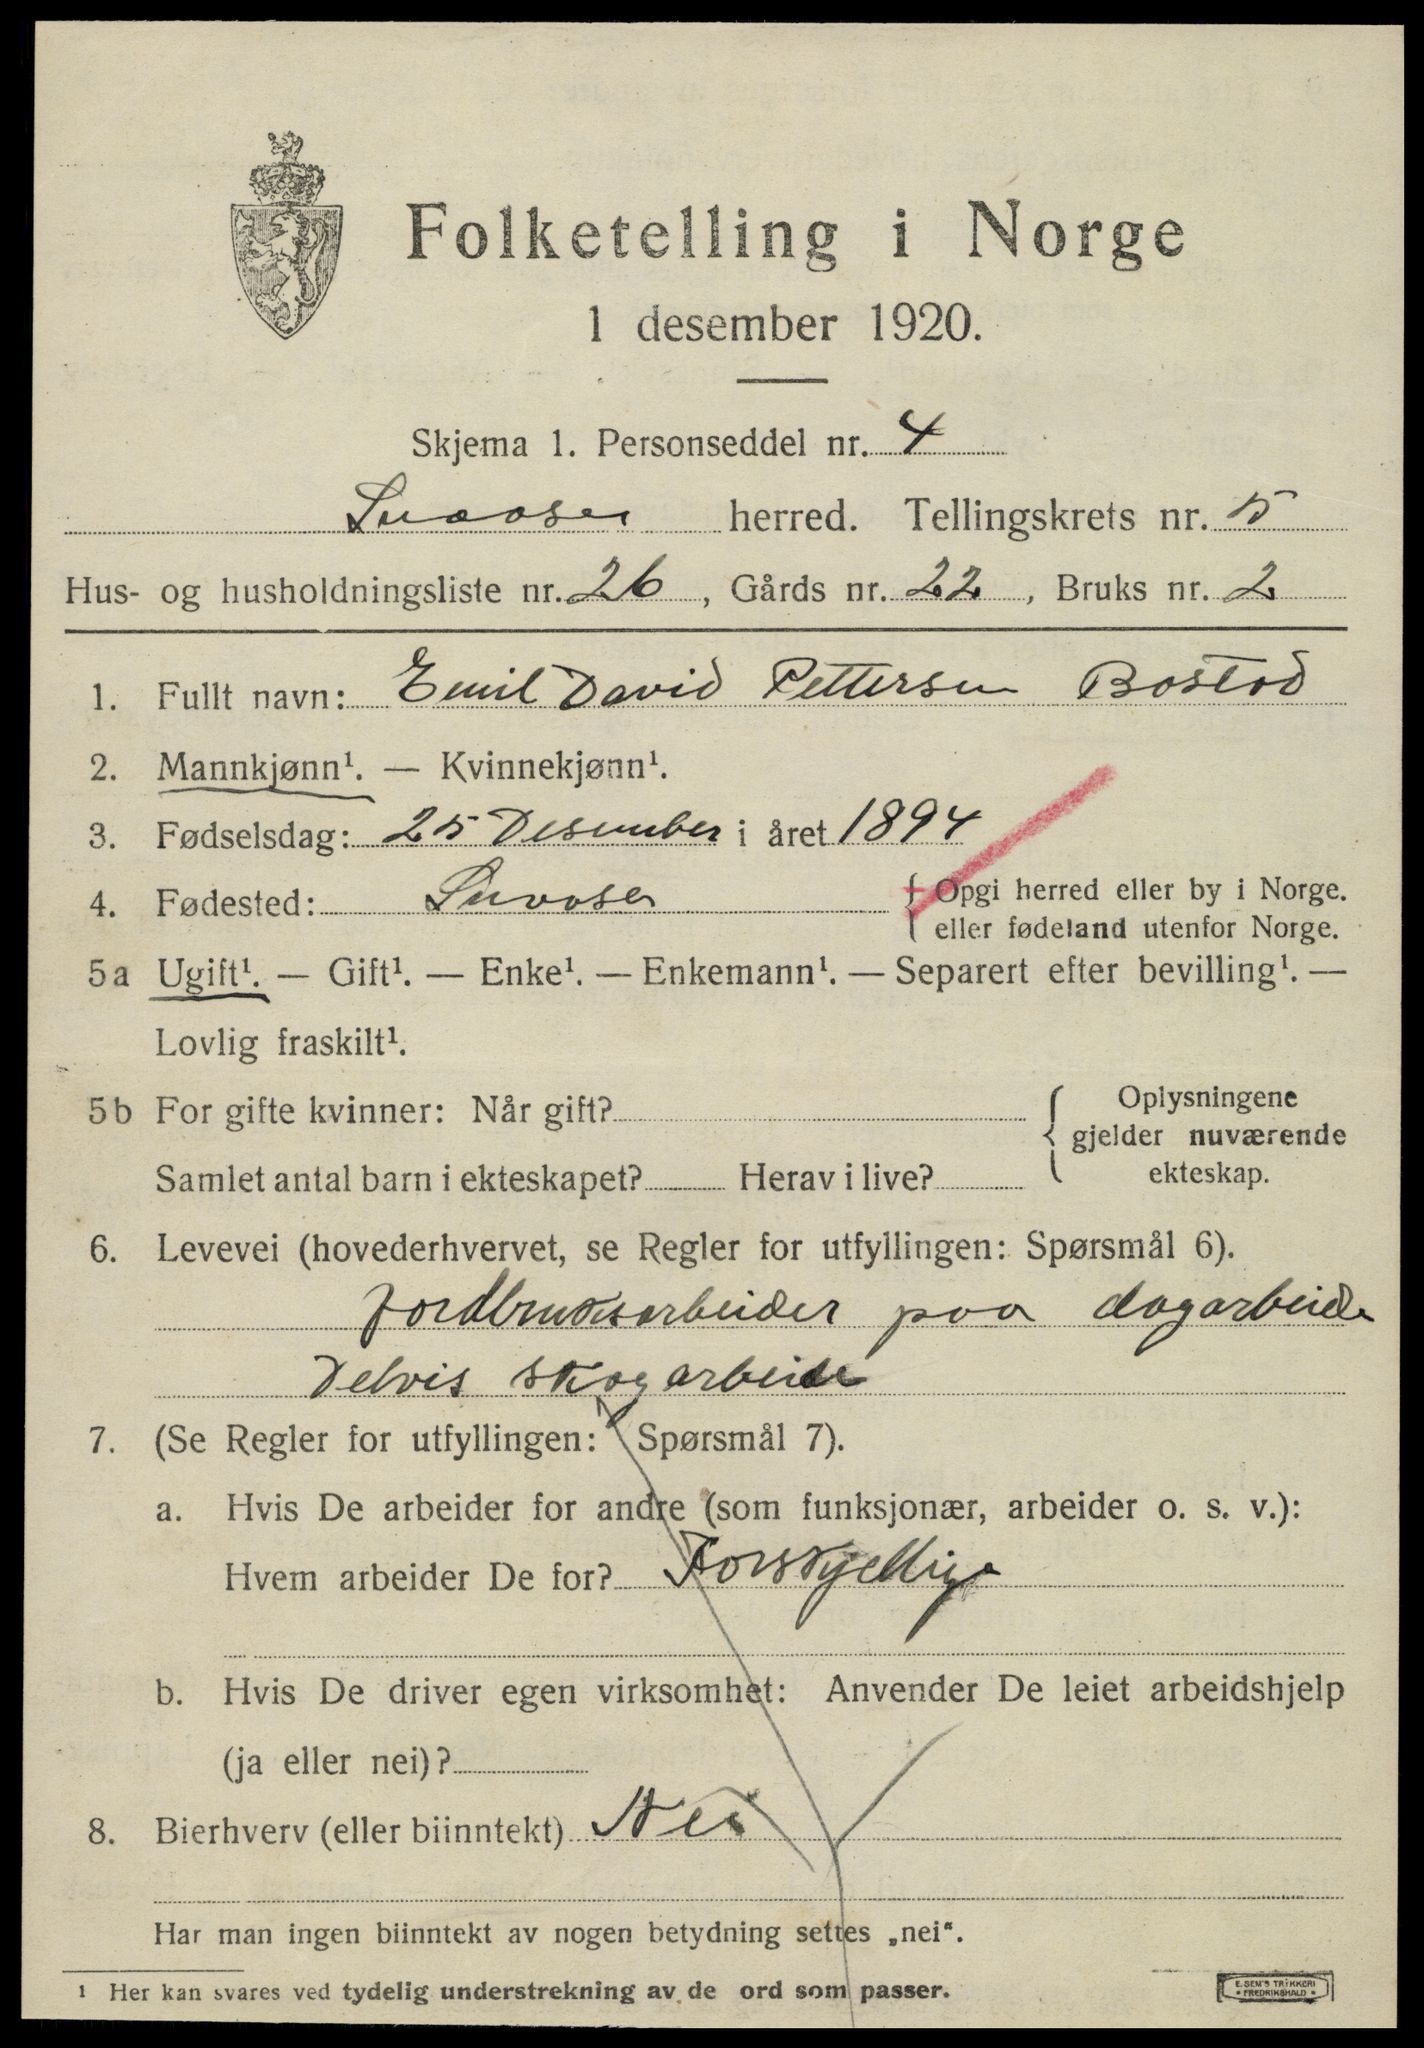 Folketelling i Norge
1 desember 1920.
Skjema 1. Personseddel nr. 4
Snaasen herred. Tellingskrets nr. 5
Hus- og husholdningsliste nr. 26, Gårds nr. 22, Bruks nr. 2
1. Fullt navn: Emil David Pettersen Bostad
2. Mannkjønn¹. — Kvinnekjønn¹.
3. Fødselsdag: 25 Desember i året 1894
4. Fødested: Snaasen { Opgi herred eller by i Norge.
eller fødeland utenfor Norge.
5a Ugift¹. — Gift¹. — Enke¹. — Enkemann¹. — Separert efter bevilling¹. —
Lovlig fraskilt¹.
5b For gifte kvinner: Når gift?
Samlet antal barn i ekteskapet? Herav i live?
{ Oplysningene
gjelder nuværende
ekteskap.
6. Levevei (hovederhvervet, se Regler for utfyllingen: Spørsmål 6).
Jordbruksarbeider paa dagarbeide
Delvis skogarbeide
7. (Se Regler for utfyllingen: Spørsmål 7).
a. Hvis De arbeider for andre (som funksjonær, arbeider o. s. v.):
Hvem arbeider De for? Forskjellige
b. Hvis De driver egen virksomhet: Anvender De leiet arbeidshjelp
(ja eller nei)?
8. Bierhverv (eller biinntekt) Nei
Har man ingen biinntekt av nogen betydning settes „nei“.
1 Her kan svares ved tydelig understrekning av de ord som passer.
E. SEM'S TRYKKERI
• FREDRIKSHALD •